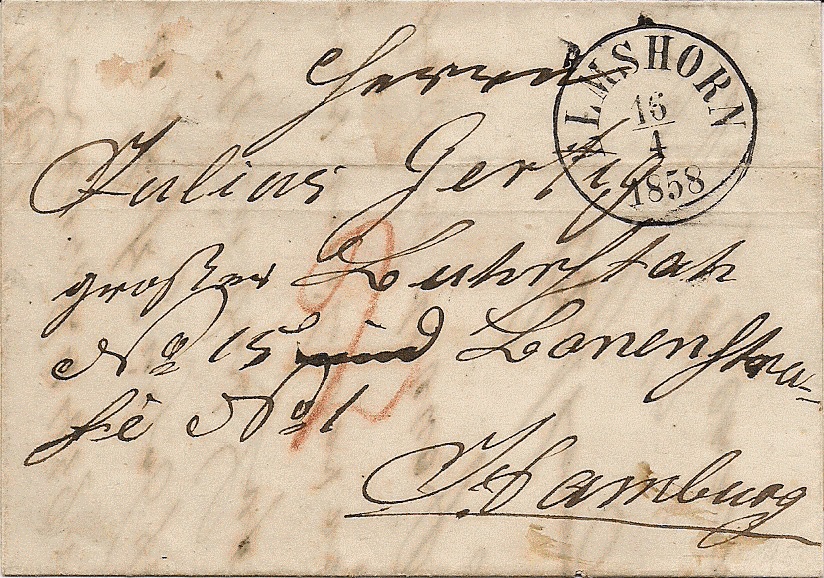 Herrn
ELMSHORN
16
4
1858
Julius
großer Buhrstah
No 15 und Bonenstra-
ße No 1
Hamburg